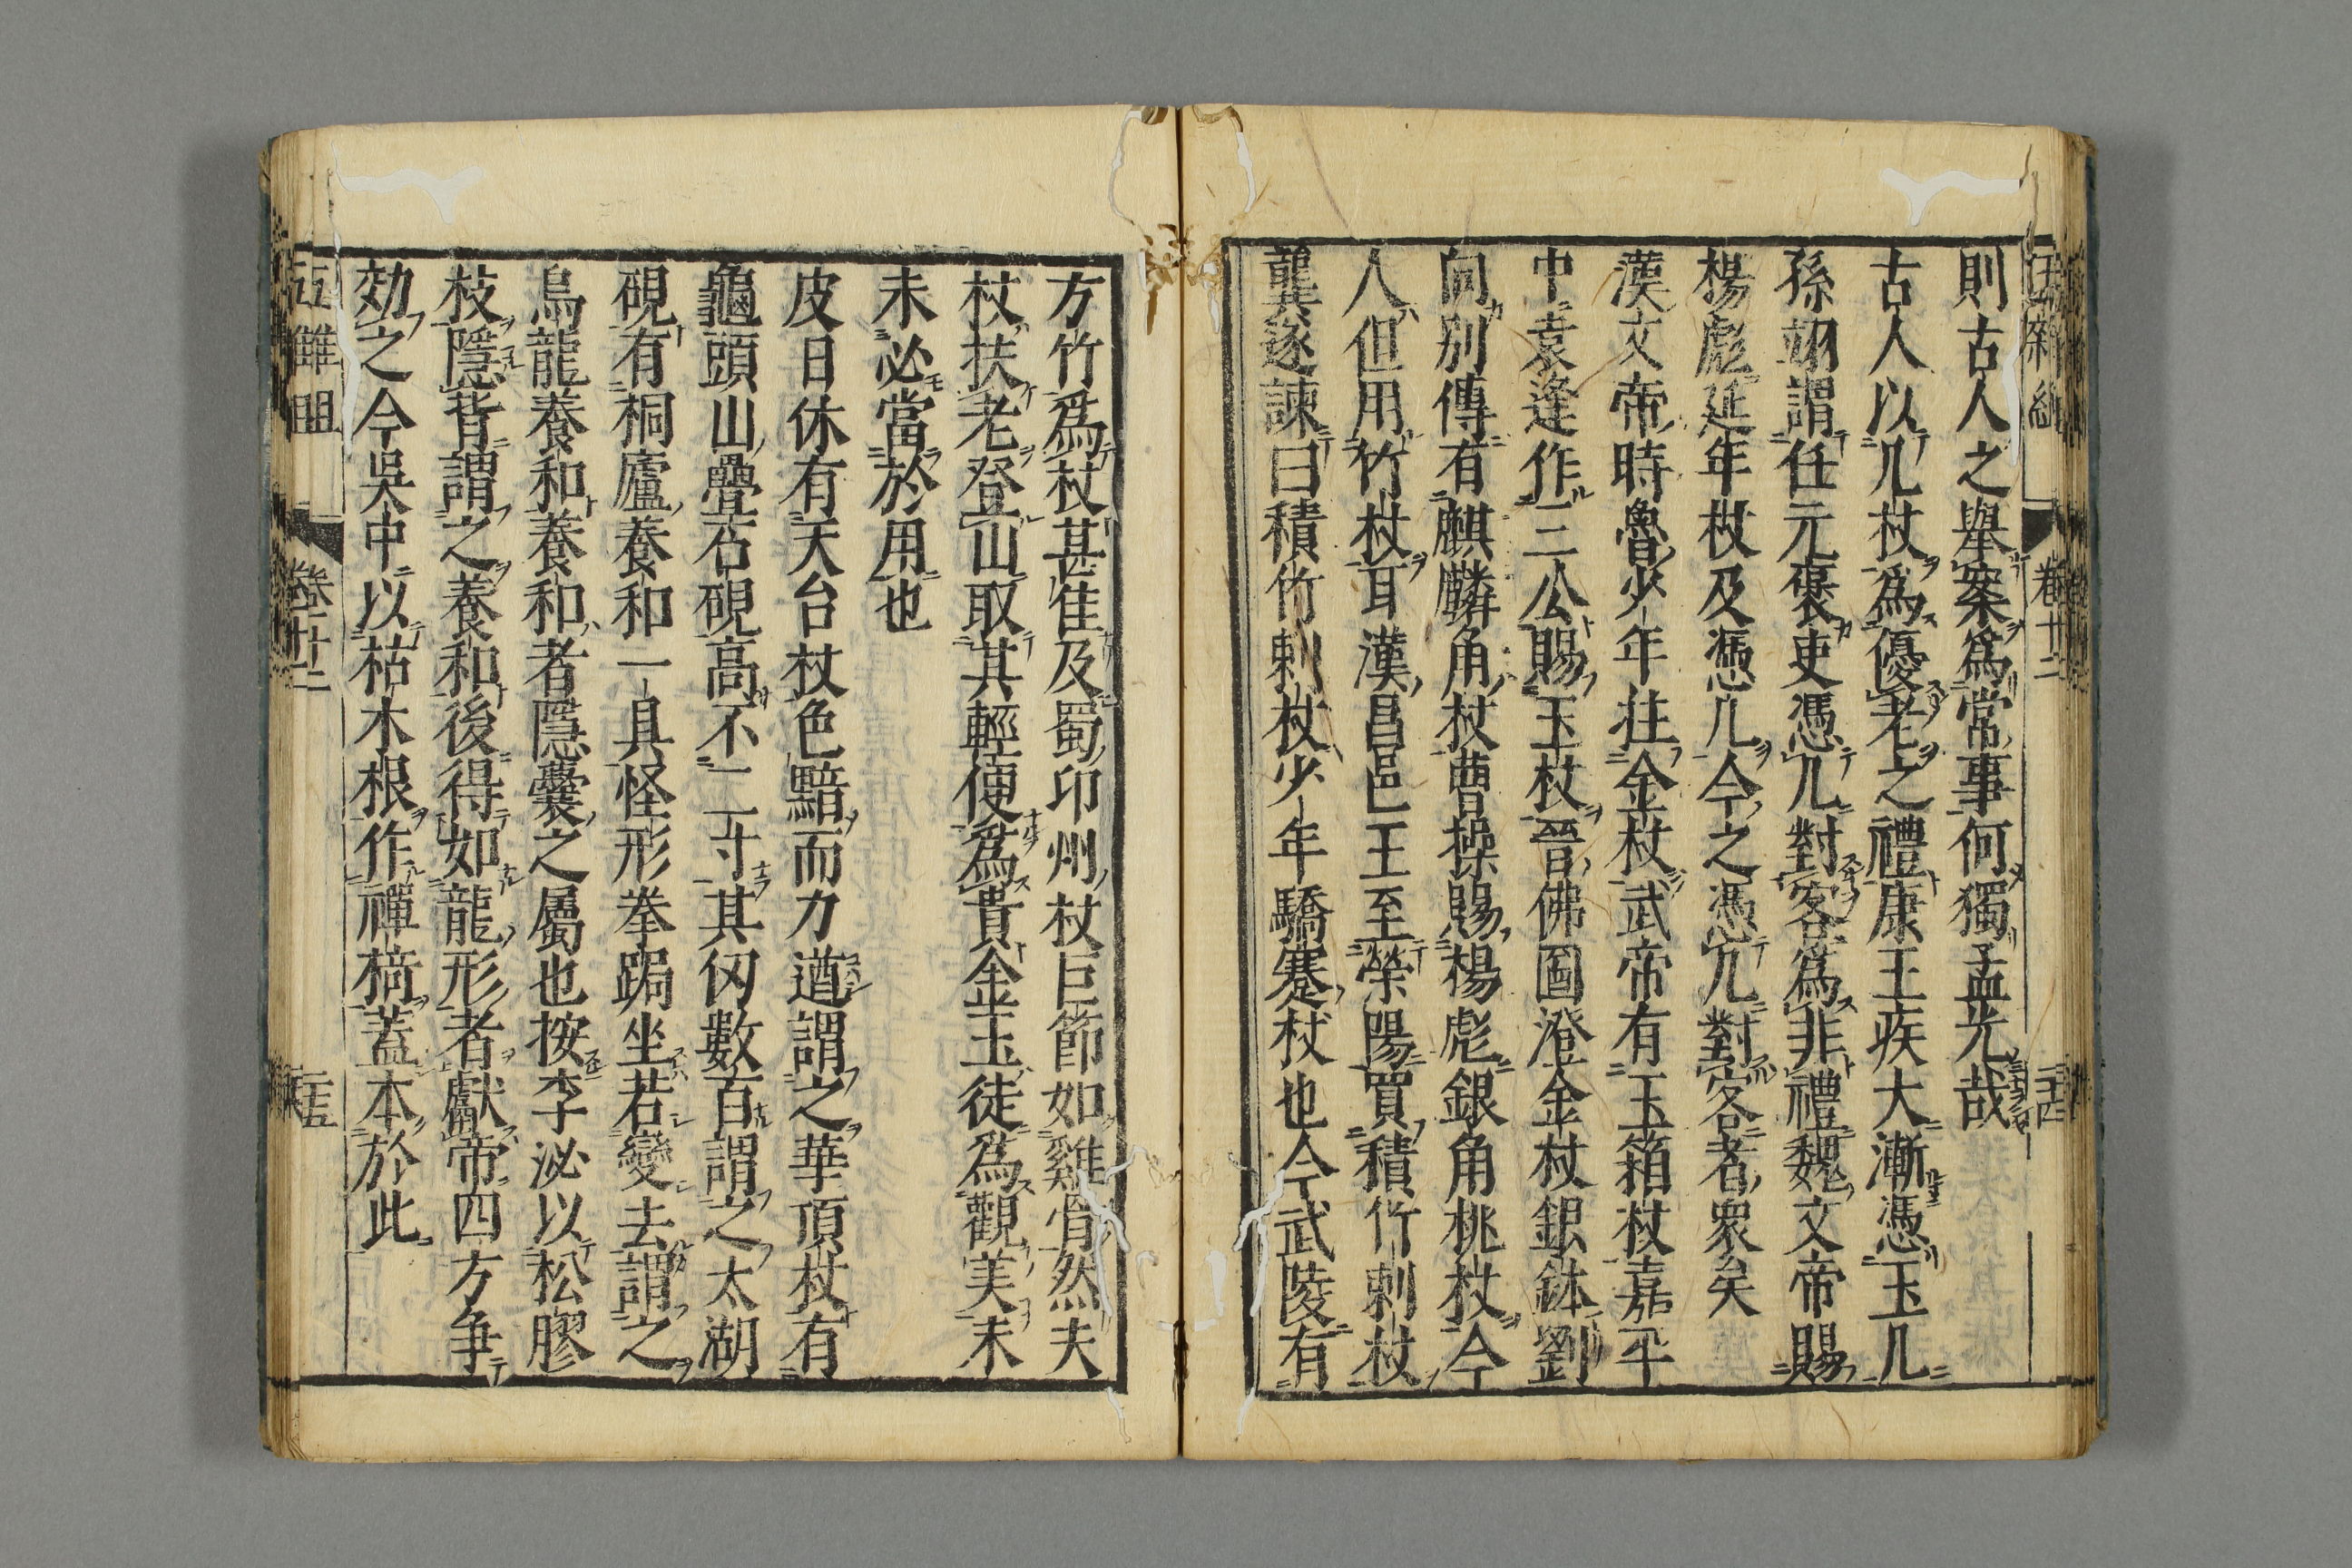 則古人之舉案爲常事何獨孟光哉
古人以几杖爲優老之禮康王疾大漸憑玉几
孫翊謂任元襃吏憑几對客爲非禮魏文帝賜
楊彪延年杖及憑几今之憑几對客者衆矣
漢文帝時魯少年拄金杖武帝有玉箱杖嘉平
中袁逢作三公賜玉杖晉佛圖澄金杖銀鉢劉
向別傳有麒麟角杖曹操賜楊彪銀角桃杖今
人但用竹杖耳漢昌邑王至榮陽買積竹刺杖
龔遂諫曰積竹刺杖少年驕蹇杖也今武陵有
方竹爲杖甚隹及蜀卭州杖巨節如雞骨然夫
杖扶老登山取其輕便爲貴金玉徒爲觀美未
未必當於用也
皮日休有天台杖色黯而力遒謂之華頂杖有
龜頭山疊石硯高不二寸其仞數百謂之太湖
硯有桐廬養和一具怪形拳跼坐若變去謂之
烏龍養和養和者隱囊之屬也按李泌以松膠
枝隱背謂之養和後得如龍形者獻帝四方爭
効之今吳中以枯木根作禪椅蓋本於此
五雜俎 卷十二 二十五